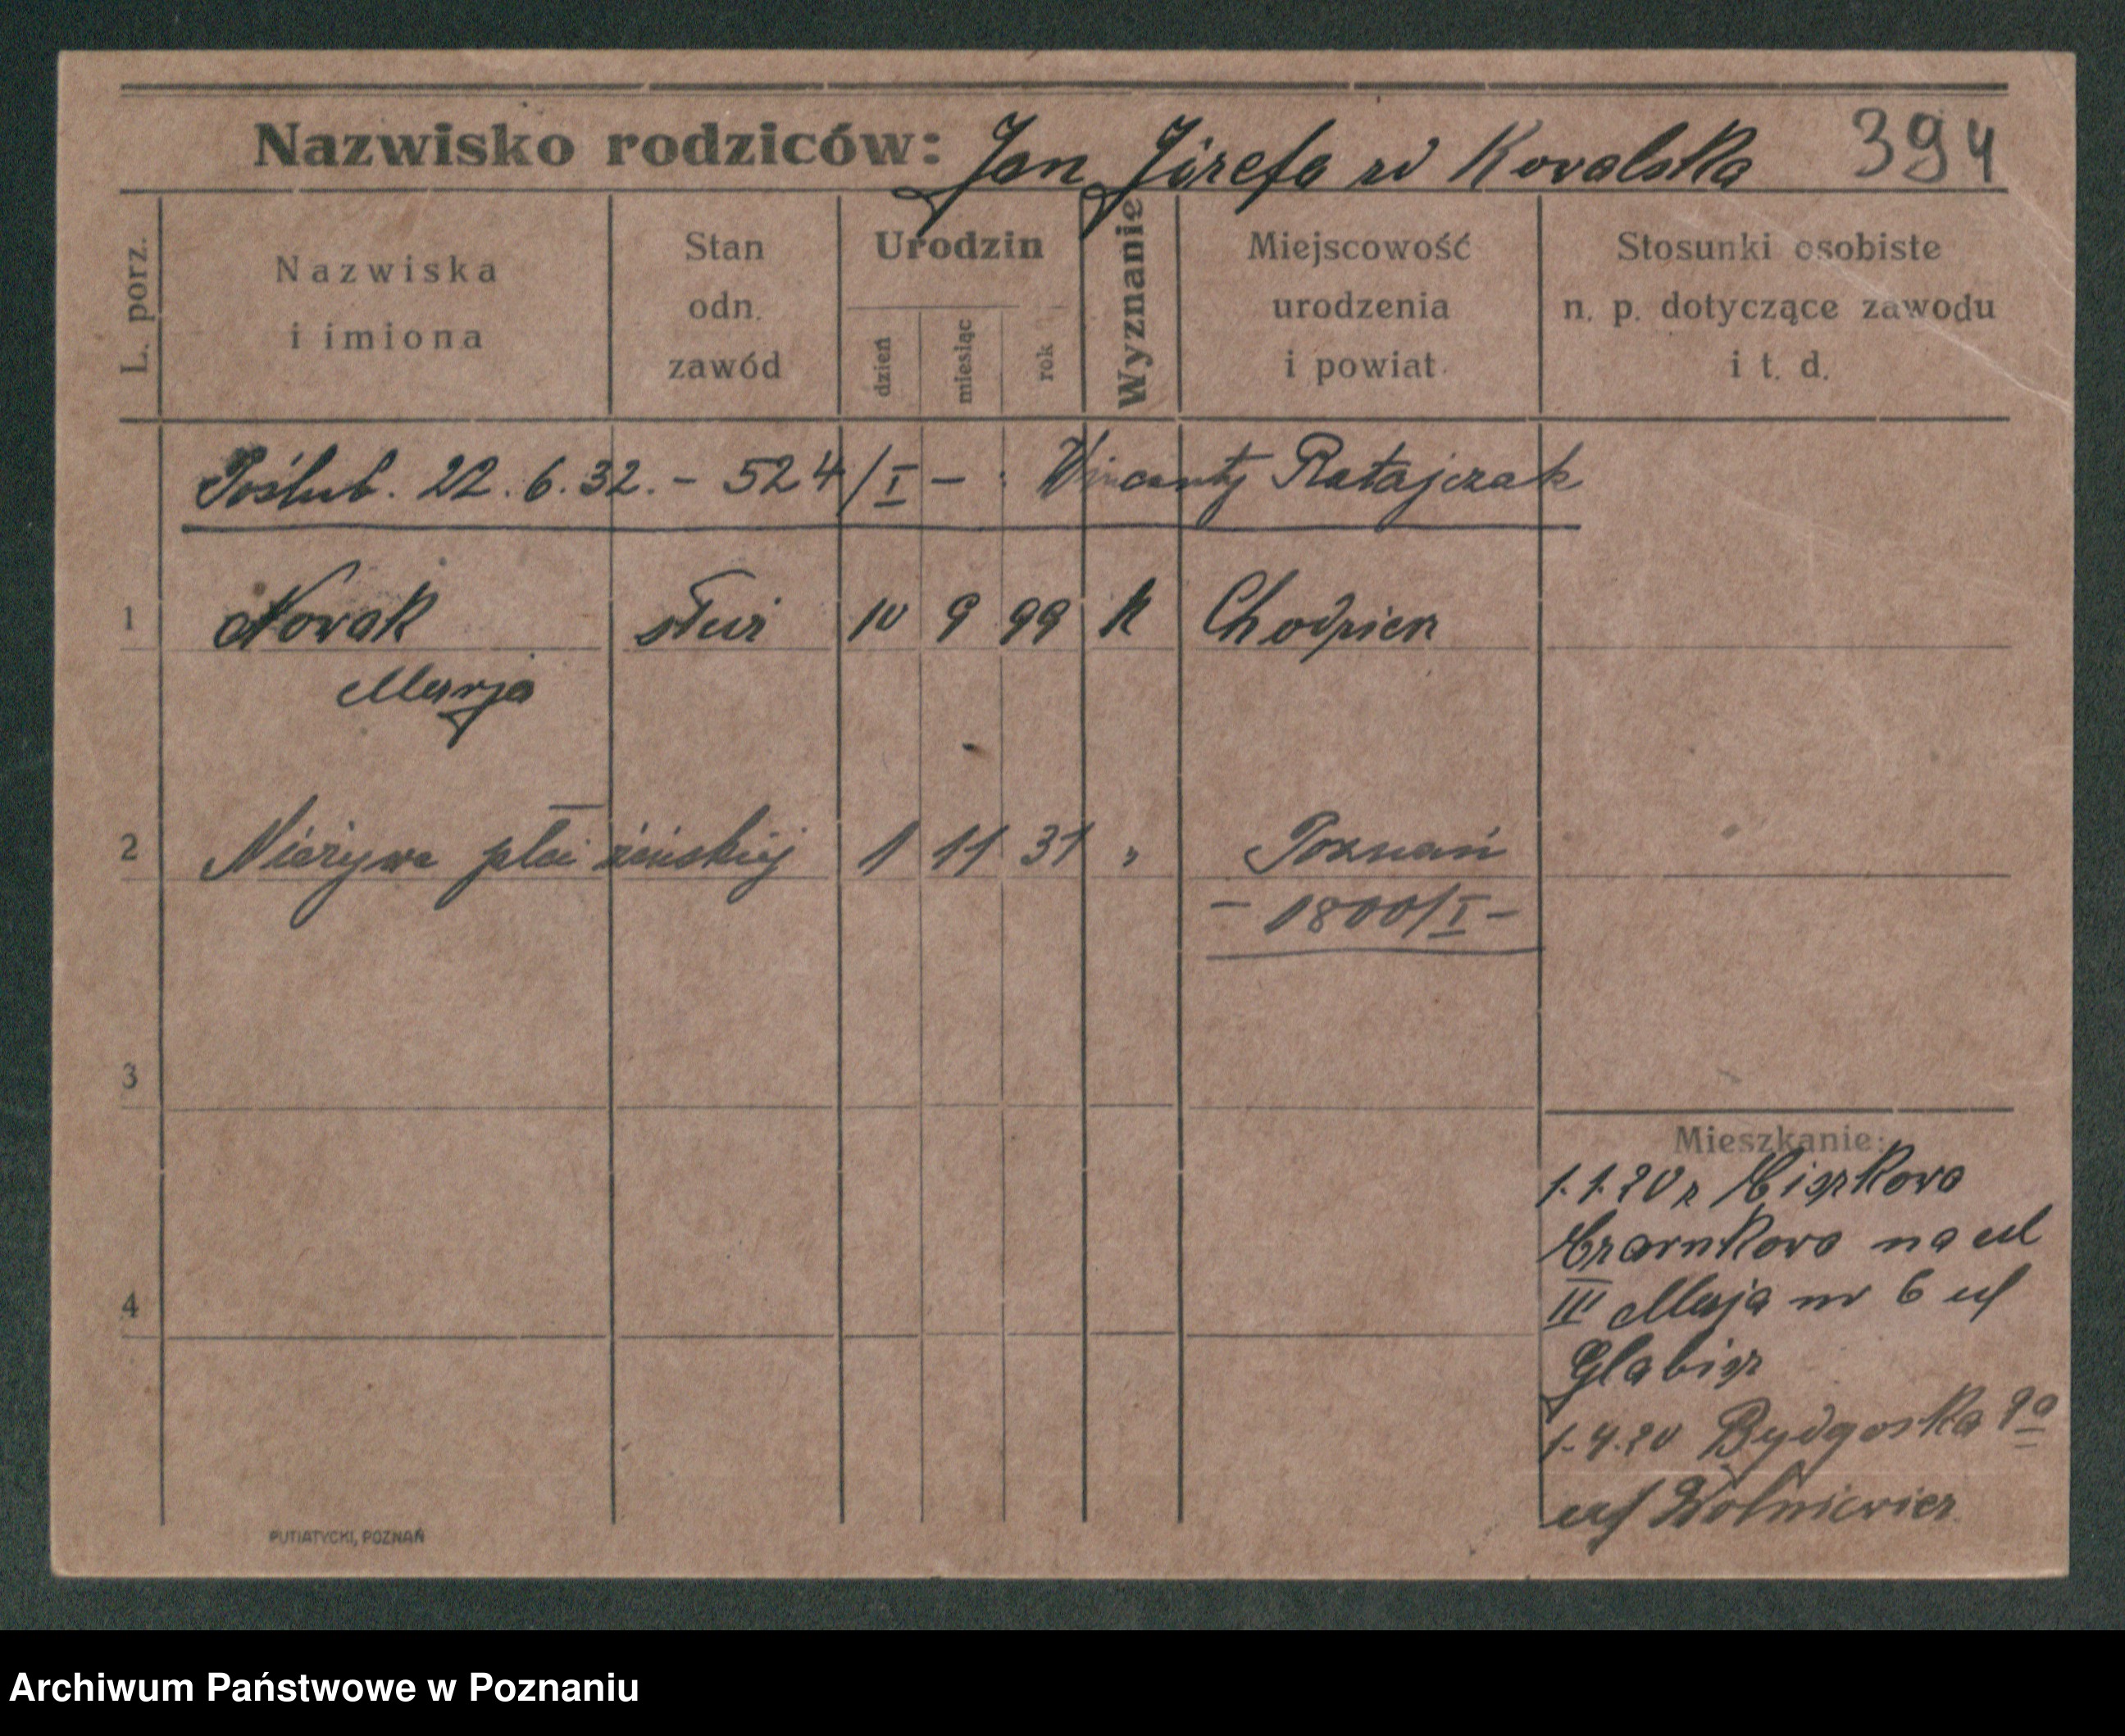 Nazwisko rodziców: Jan Józefa zd Kowalska 394
L. porz.
Nazwiska i imiona
Stan odn. zawód
Urodzin
dzień
miesiąc
rok
Wyznanie
Miejscowość urodzenia i powiat
Stosunki osobiste n. p. dotyczące zawodu i t. d.
Poślub. 22.6.32. - 524/I - : Wincenty Ratajczak
1 Nowak służ 10 9 99 k
Marja
2 Nieżywa płci żeńskiej 1 11 31 " Poznań
- 1800/I -
3
4
Mieszkanie:
1.1.20 z
na ul
III Maja nr 6 uf
Glabisz
1.4.20 Bydgoska
uf Wolniewicz
PUTIATYCKI, POZNAŃ
Archiwum Państwowe w Poznaniu